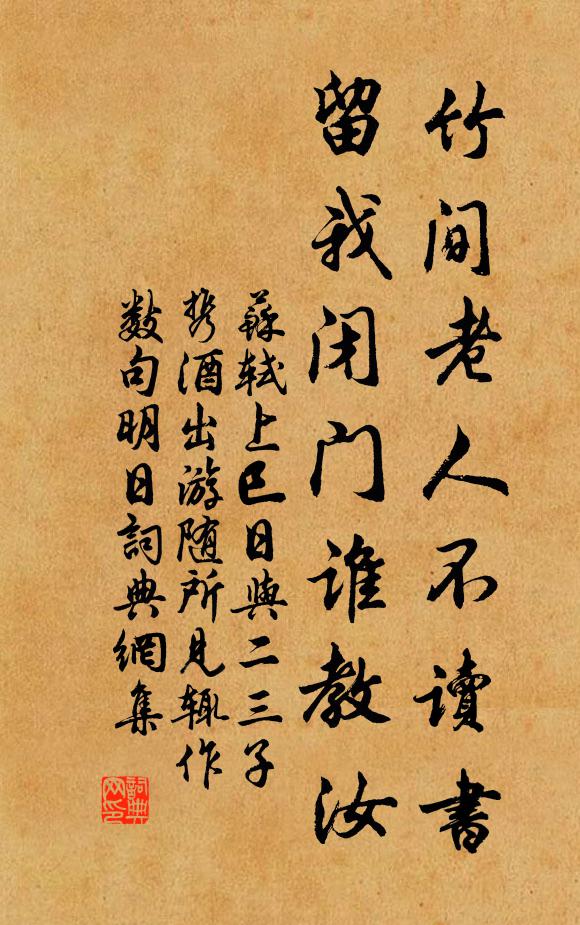 竹间老人不讀書
留我闭门谁教汝
蘇轼上巳日與二三子
携酒出游随所見辄作
数句明日詞典網集
詞典
网印